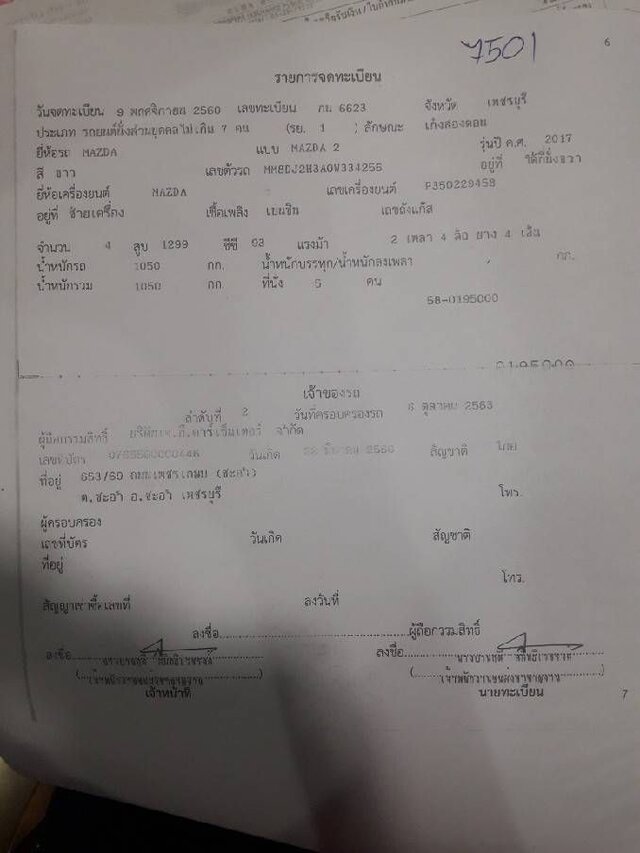 7501
6
รายการจดทะเบียน
วันจดทะเบียน 9 พฤศจิกายน 2560 เลขทะเบียน กน 6623 จังหวัด เพชรบุรี
ประเภท รถยนต์นั่งส่วนบุคคลไม่เกิน 7 คน (รย. 1 ) ลักษณะ เก๋งสองตอน
ยี่ห้อรถ MAZDA แบบ MAZDA 2 รุ่นปี ค.ศ. 2017
สี ขาว เลขตัวรถ อยู่ที่ ใต้ที่นั่งขวา
ยี่ห้อเครื่องยนต์ MAZDA เลขเครื่องยนต์
อยู่ที่ ซ้ายเครื่อง เชื้อเพลิง เบนซิน เลขถังแก๊ส
จำนวน 4 สูบ 1299 ซีซี 93 แรงม้า 2 เพลา 4 ล้อ ยาง 4 เส้น
น้ำหนักรถ 1050 กก. น้ำหนักบรรทุก/น้ำหนักลงเพลา กก.
น้ำหนักรวม 1050 กก. ที่นั่ง 5 คน
58-0195000
0195000
เจ้าของรถ
ลำดับที่ 2 วันที่ครอบครองรถ 6 ตุลาคม 2563
ผู้มีกรรมสิทธิ์ จำกัด
เลขที่บัตร วันเกิด สัญชาติ ไทย
ที่อยู่ 653/60 ถนนเพชรเกษม (ชะอำ)
ต.ชะอำ อ.ชะอำ เพชรบุรี โทร.
ผู้ครอบครอง
เลขที่บัตร วันเกิด สัญชาติ
ที่อยู่
โทร.
สัญญาเช่าซื้อเลขที่ ลงวันที่
ลงชื่อ ผู้ถือกรรมสิทธิ์
ลงชื่อ ลงชื่อ
เจ้าหน้าที่ นายทะเบียน
7